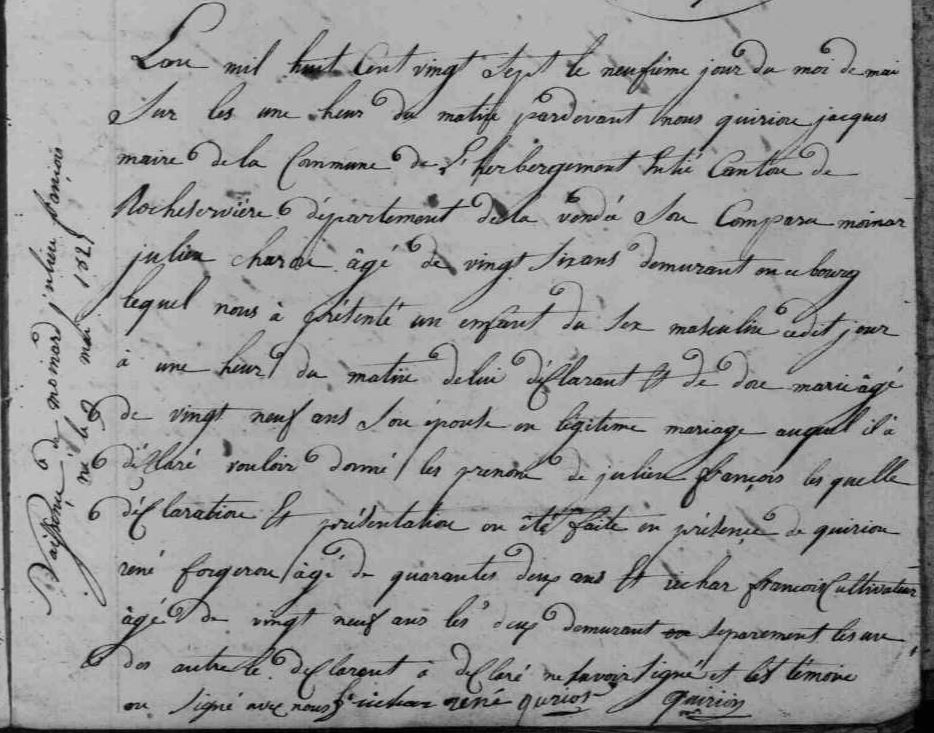 Naissance de moinard julien françois
né le 9 mai 1827
Lan mil huit Cent vingt Sept le neufième jour du moi de mai
Sur les une heur du matin pardevant nous quirion jacques
maire de la Commune de L'herbergement Entié Canton de
Rocheservière département de la vendé Son Comparu moinar
julien charon âgé de vingt Sixans demurant en ce bourg
lequel nous à présenté un enfant du Sex masculin cedit jour
à une heur du matin delui déClarant Et de dore marie âgé
de vingt neuf ans Son épouse en légitime mariage auquel il à
déClaré vouloir donné les prenons de julien françois les quelle
déClaration Et présentation on été faite en présence de quirion
réné forgeron âgé de quarantes deux ans Et richar francois Cultivateur
âgé de vingt neuf ans les deux demurant Separement les un
des autre le déClarant à déClaré ne Savoir Signé et les témoins
on Signé avec nous f richar réné quriot quirion